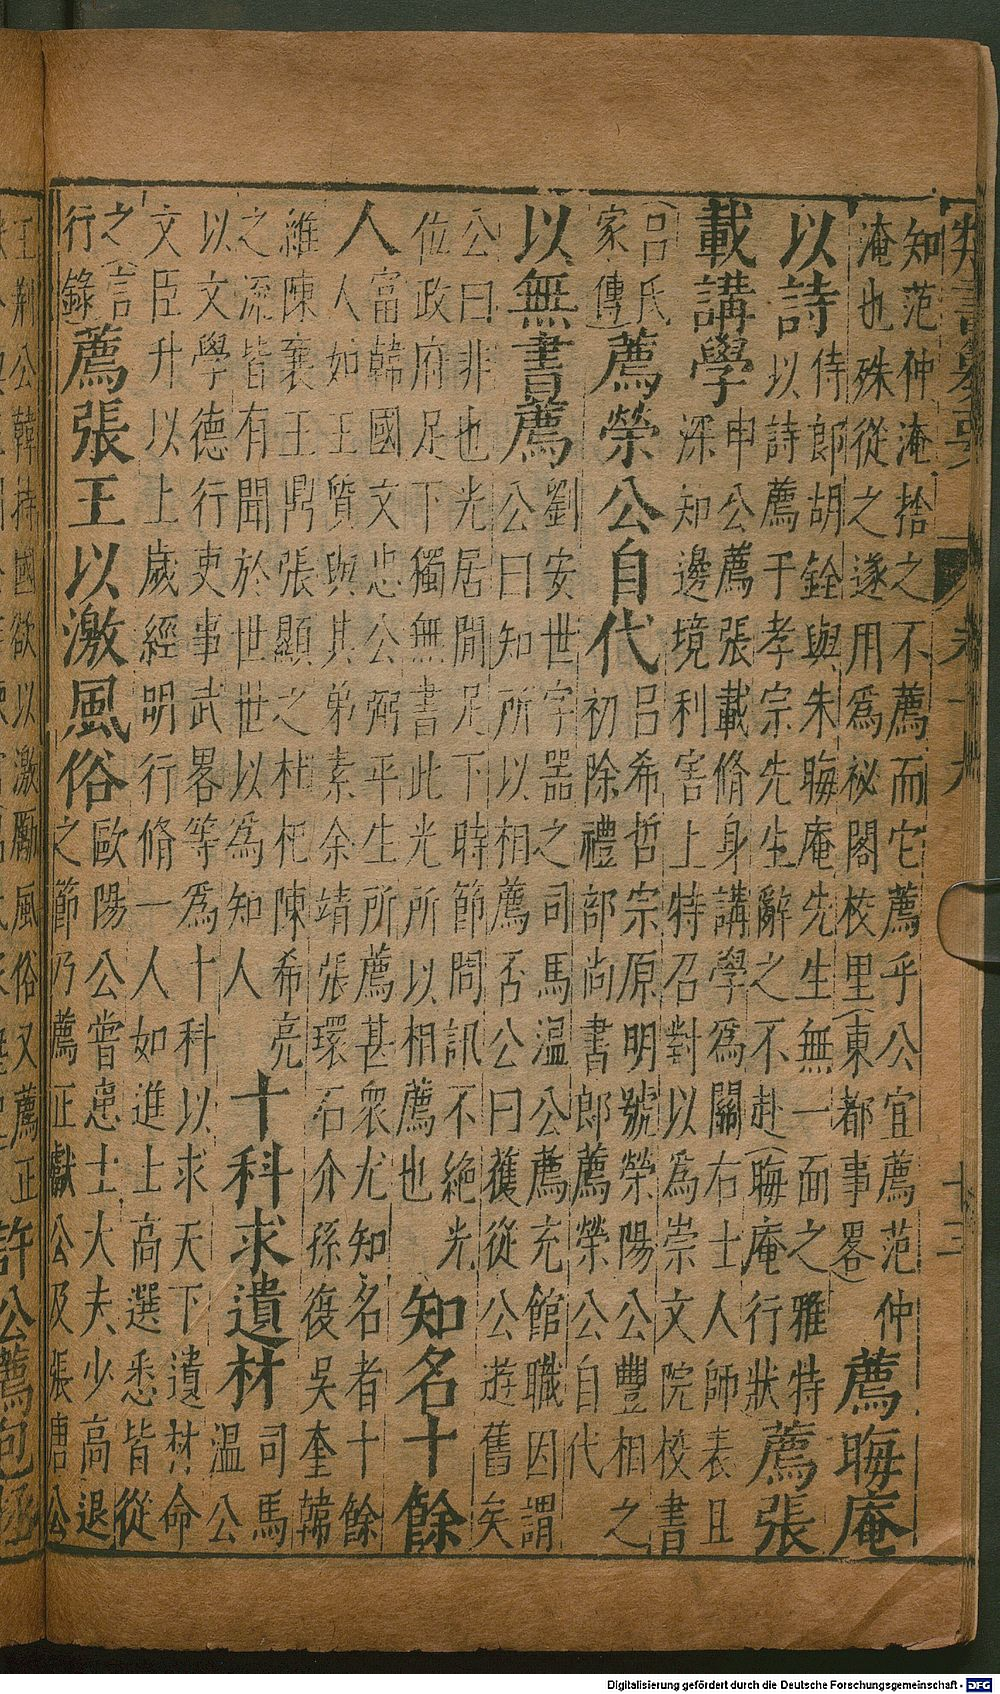 卷十九
十三
知范仲淹捨之不薦而它薦乎公宜薦范仲
淹也殊從之遂用爲祕閣校里(東都事畧)
薦晦庵
以詩
侍郎胡銓與朱晦庵先生無一面之雅特
以詩薦于孝宗先生辭之不赴(晦庵行狀)
薦張
載講學
申公薦張載脩身講學爲關右士人師表且
深知邊境利害上特召對以爲崇文院校書
(呂氏
家傳)
薦榮公自代
呂希哲宗原明號榮陽公豐相之
初除禮部尚書郎薦榮公自代
以無書薦
劉安世字器之司馬温公薦充館職因謂
公曰知所以相薦否公曰獲從公遊舊矣
公曰非也光居閒足下時節問訊不絶光
位政府足下獨無書此光所以相薦也
知名十餘
人
富韓國文忠公弼平生所薦甚衆尤知名者十餘
人人如王質與其弟素余靖張環石介孫復吳奎韓
維陳襄王鼎張顯之杜杞陳希亮
之流皆有聞於世世以爲知人
十科求遺材
司馬
温公
以文學德行吏事武畧等爲十科以求天下遺材命
文臣升以上歲經明行脩一人如進上高選悉皆從
之(言
行錄)
薦張王以激風俗
歐陽公嘗患士大夫少高退
之節乃薦正獻公及張唐公
王荆公韓持國欲以激勵風俗又薦正
許公薦包拯
Digitalisierung gefördert durch die Deutsche Forschungsgemeinschaft - DFG